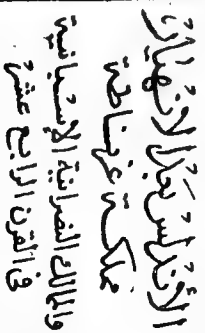 الأندلس قبل الانهيار
مملكة غرناطة
والممالك النصرانية الإسبانية
في القرن الرابع عشر